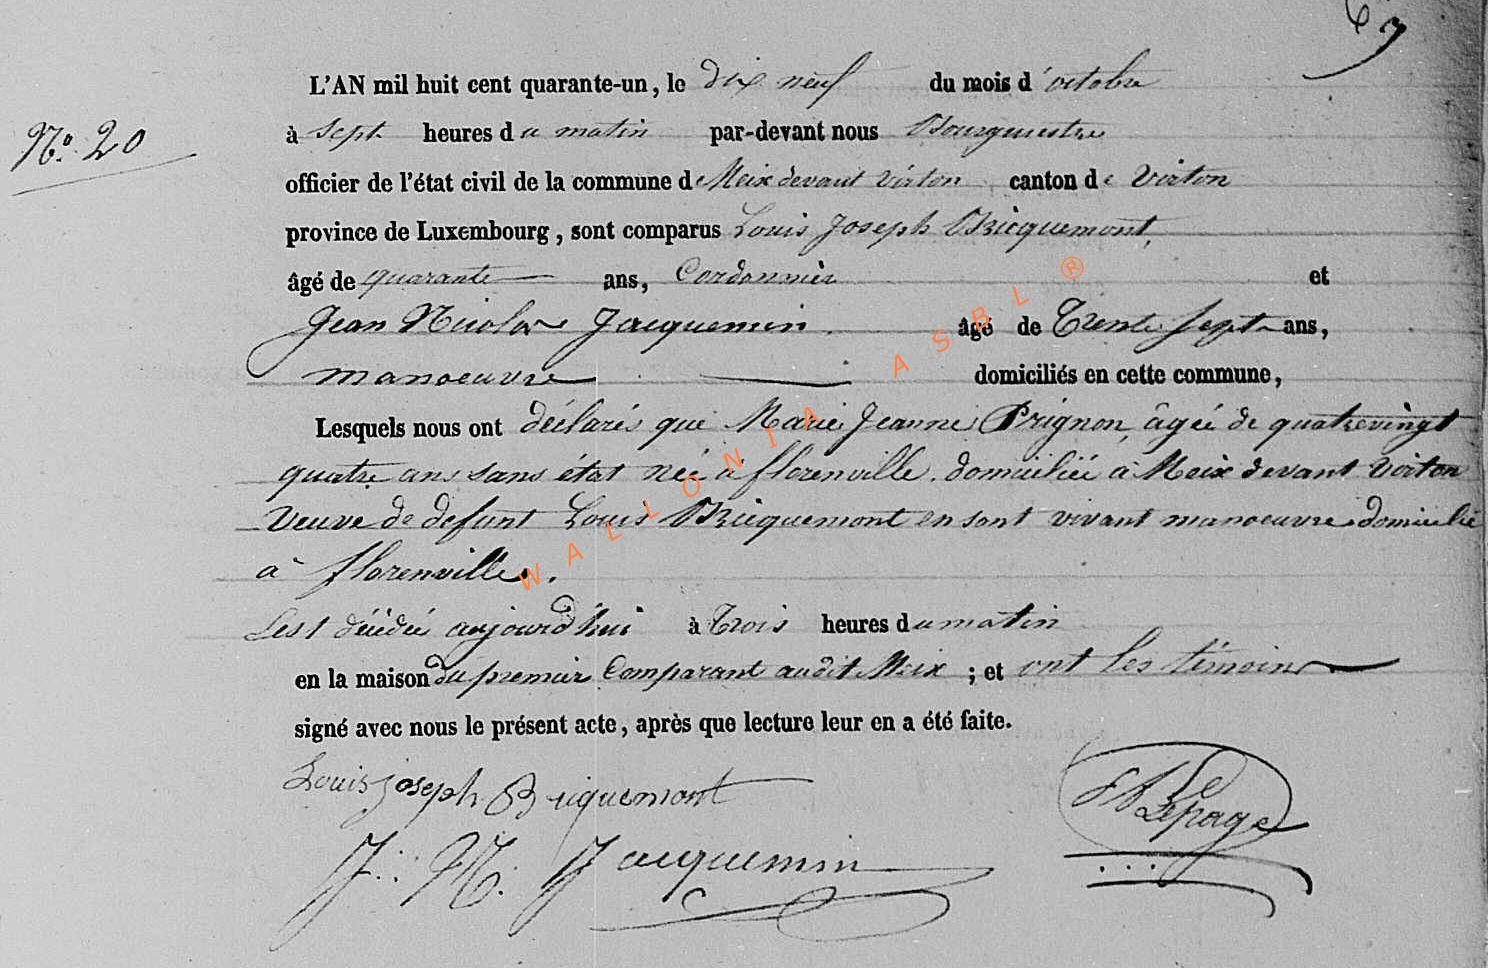 67
L'AN mil huit cent quarante-un, le dix neuf du mois d'octobre
N° 20
à sept heures du matin par-devant nous Bourgmestre
officier de l'état civil de la commune de Meix devant virton canton de Virton
province de Luxembourg, sont comparus Louis Joseph Bricquemont,
âgé de quarante ans, Cordonnier et
Jean Nicolas Jacquemin âgé de Trente sept ans,
manoeuvre domiciliés en cette commune,
Lesquels nous ont déclarés que Marie Jeanne Prignon, âgée de quatrevingt
quatre ans sans état née à florenville. domiciliée à Meix devant Virton
Veuve de defunt Louis Bricquemont en sont vivant manoeuvre domicilié
à florenville.
Est décédée aujourd'hui à Trois heures du matin
en la maison du premier Comparant audit Meix ; et ont les témoins
signé avec nous le présent acte, après que lecture leur en a été faite.
Louis joseph Briquemont
Lepage
J: N: Jacquemin
WALLONIA ASBL ®